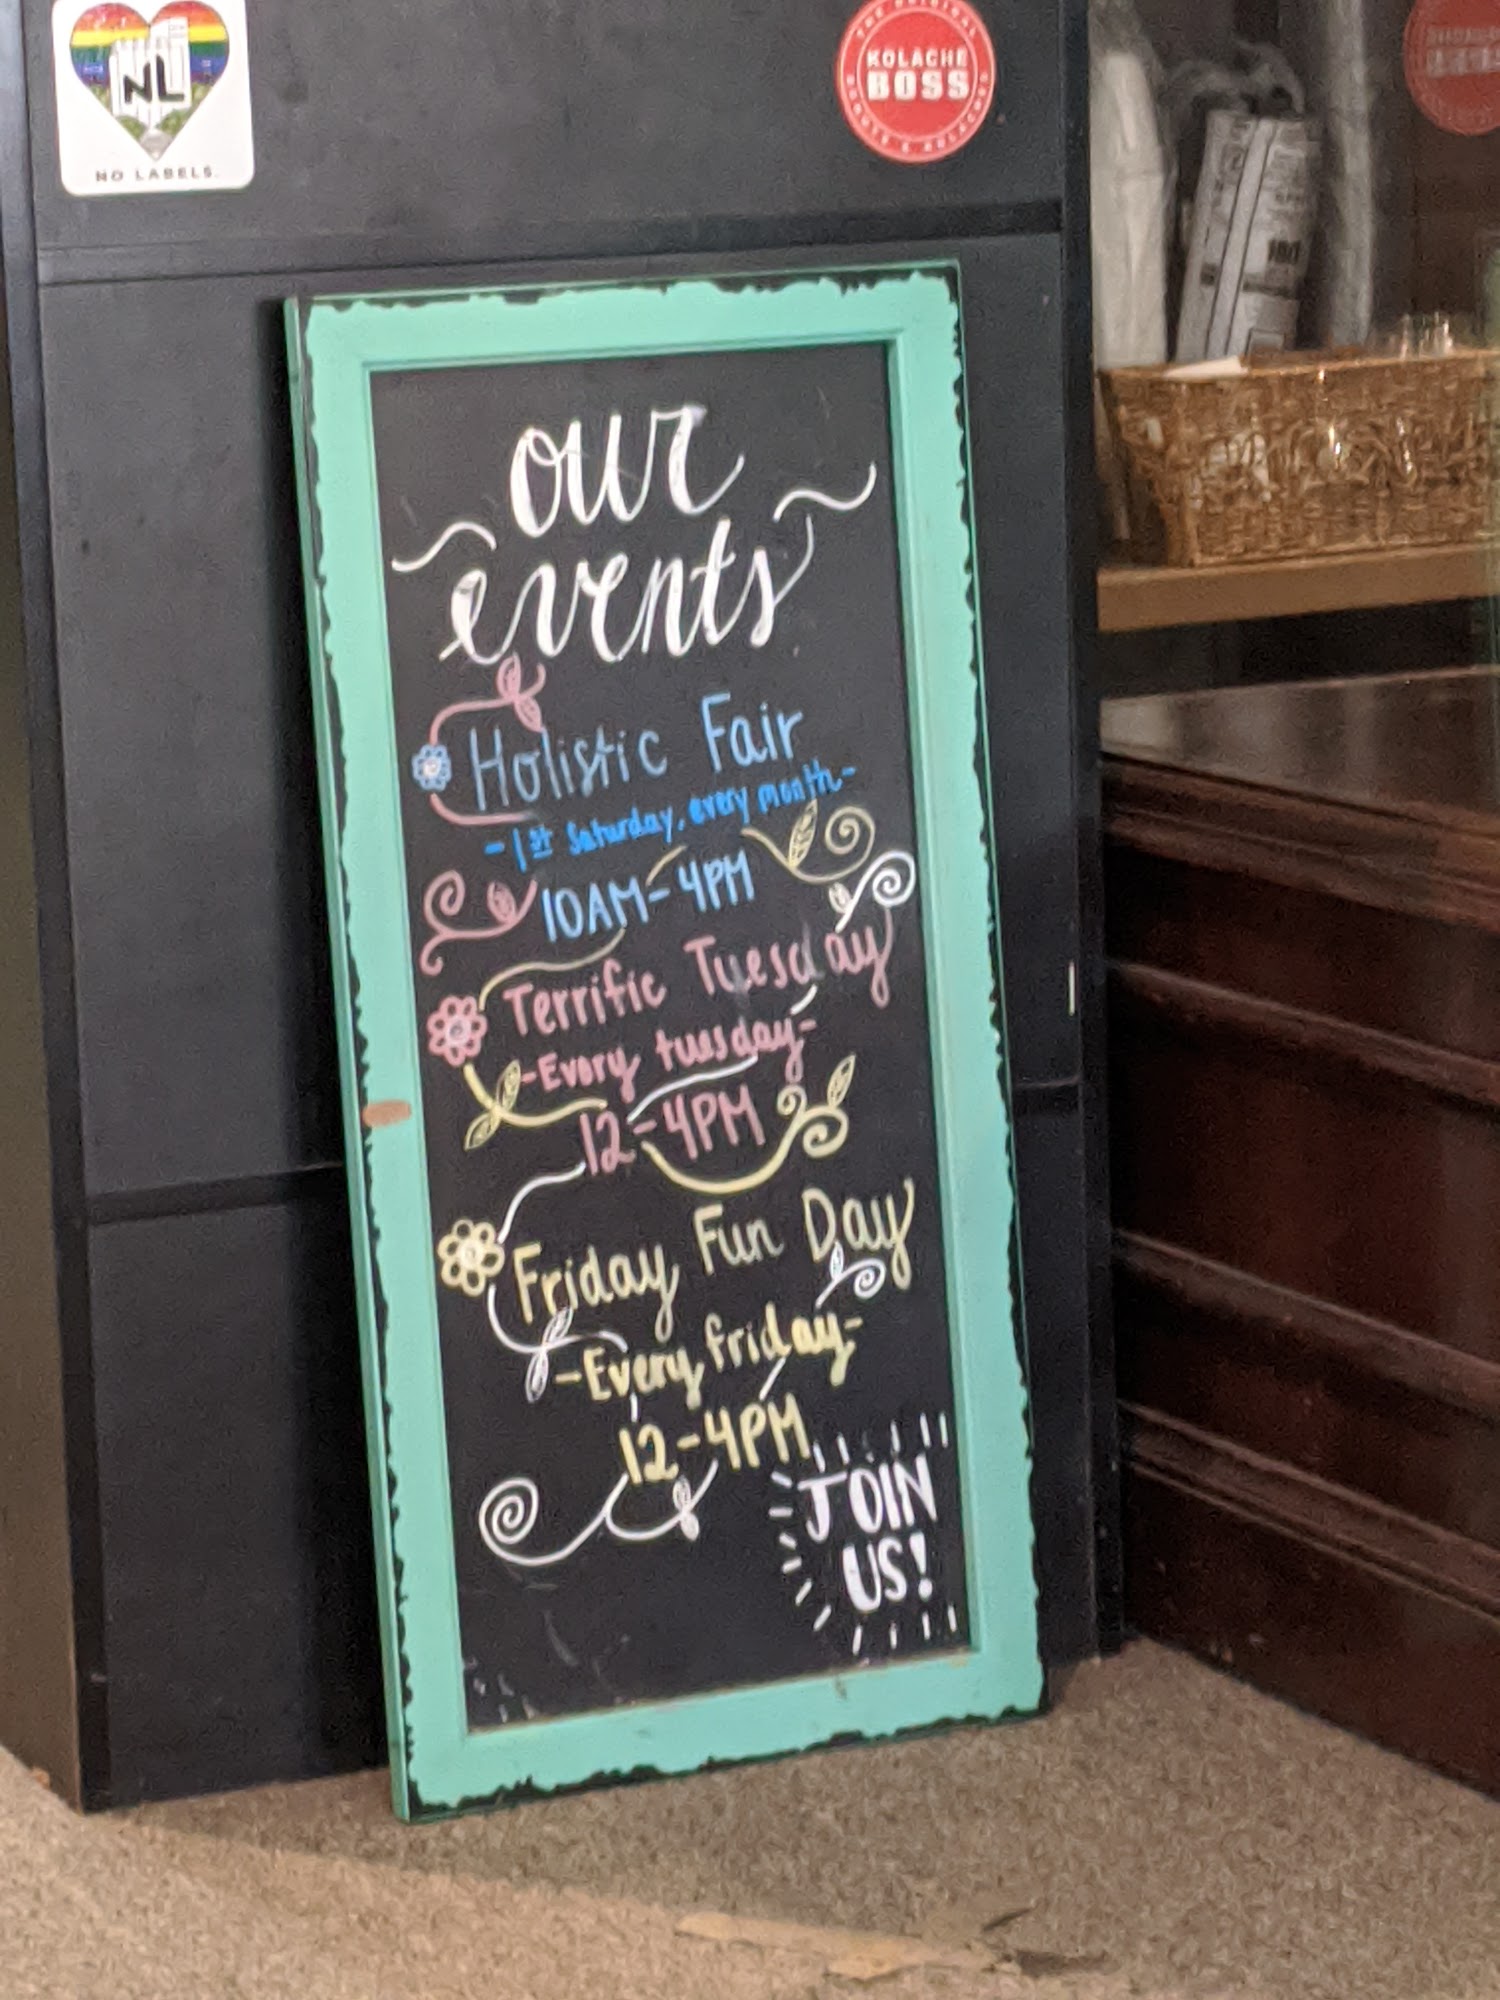 NL
NO LABELS.
THE ORIGINAL
KOLACHE
BOSS
DONUTS & KOLACHES
our
events
Holistic Fair
-1st Saturday, every month-
10AM-4PM
Terrific Tuesday
-Every tuesday-
12-4PM
Friday Fun Day
-Every friday-
12-4PM
JOIN
US!